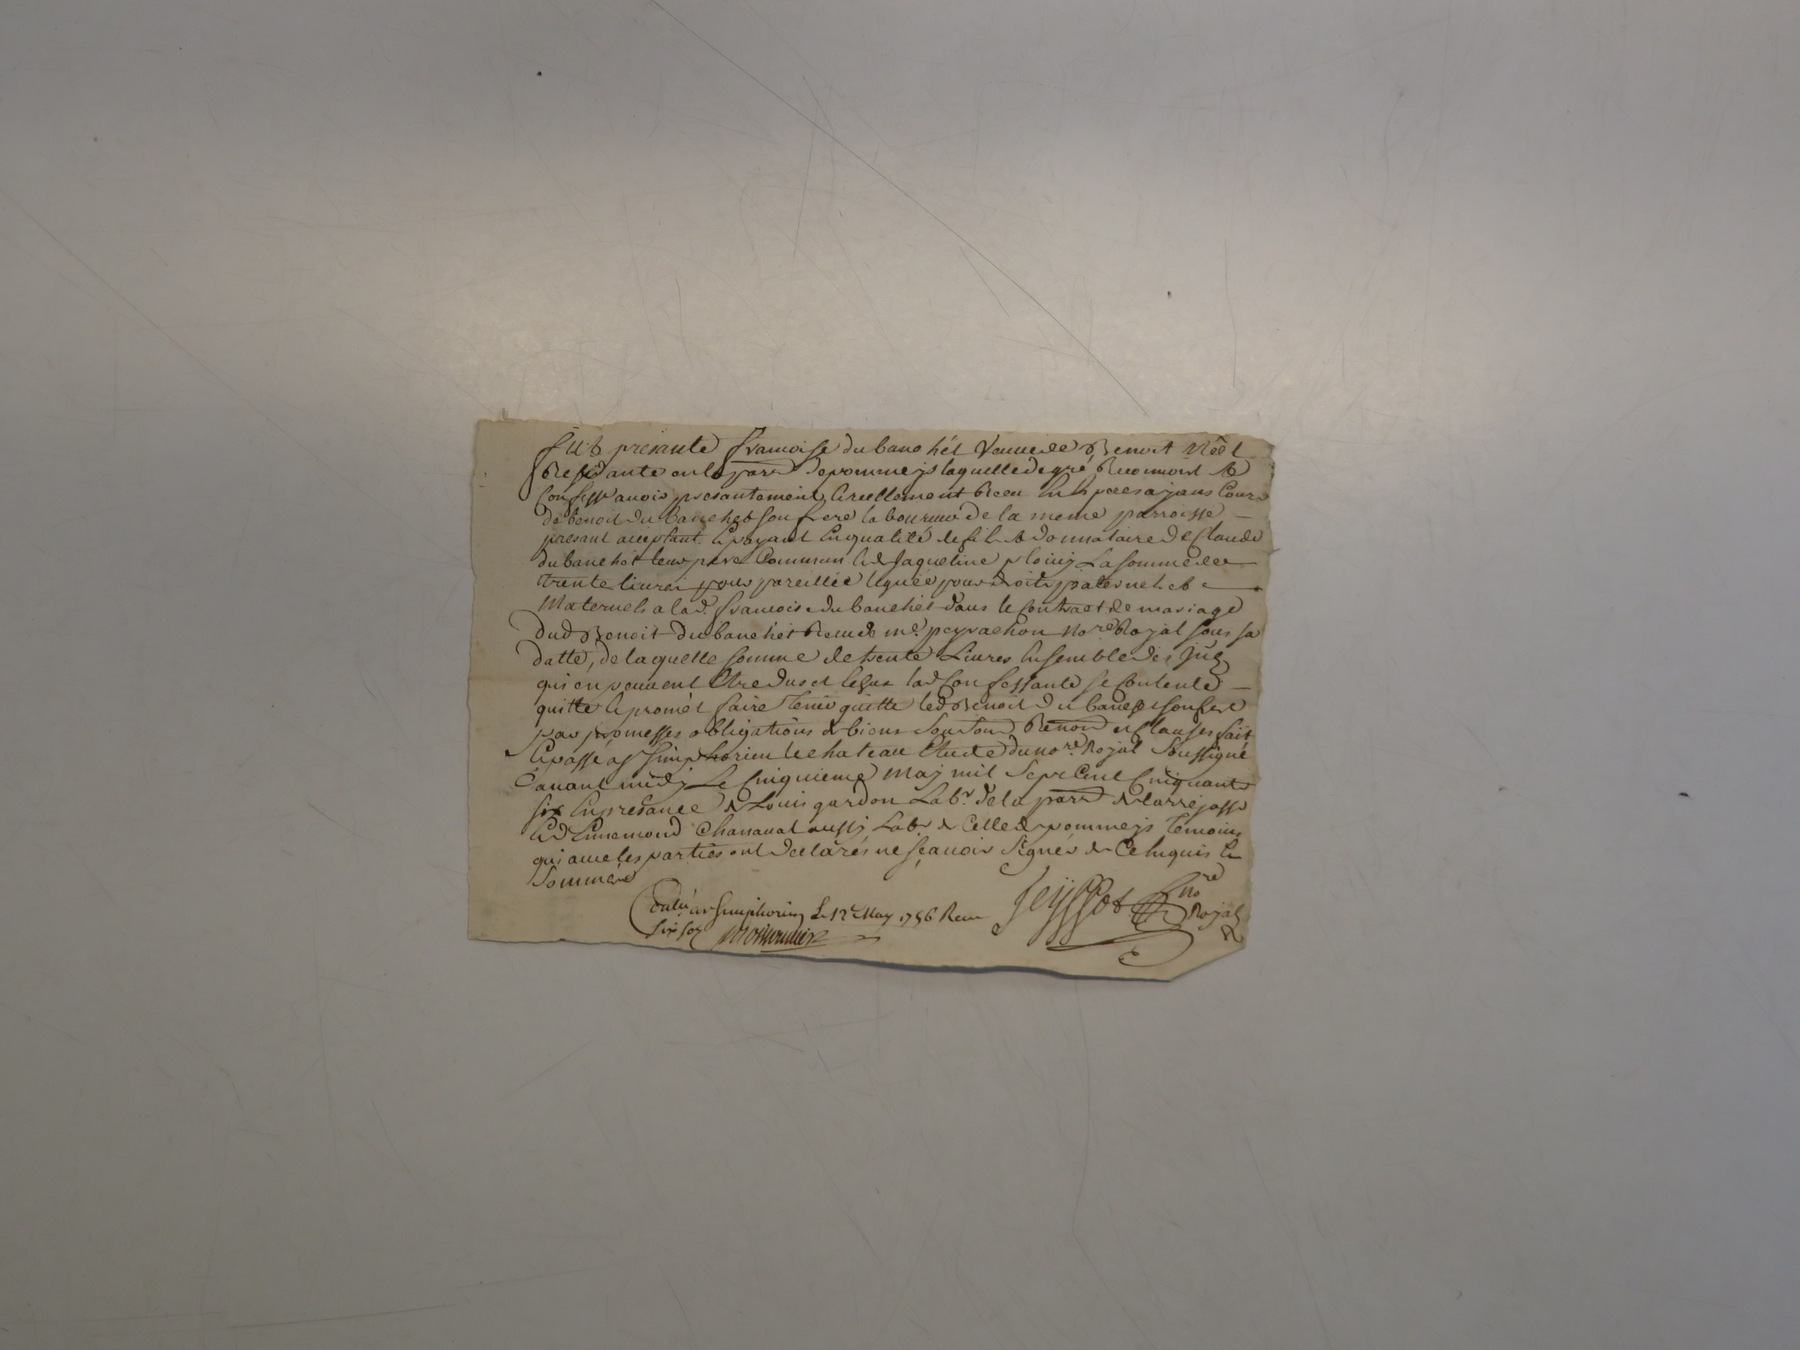 fut presante francoise du banchét Veuve de Benoit Nëel
Residante en la parr de pommeys laquelle de gré Reconnoit &
Confesse avoir presantement et reellement Receu en especes ajans Cours
de benoit du banchet son frere laboureur de la meme parroisse –
presant acceptant et payant en qualité de fils & donnataire de Claude
du banchét leur pere Commun et de Jaqueline La somme de
trente livres pour pareille leguée pour droits paternels &
Maternels a lad. francoise du banchét dans le Contract de mariage
dud Benoit du banchét Receu de me. peyrachon Nore Royal sous sa
datte, de laquelle somme de trente Livres ensemble des
qui en peuvent Etre dus et lad Confessante se Contente –
quitte et promét faire tenir quitte led Benoit du banchet son frere
par promesses obligations & biens Renon et Clauses fait
et passé a st Simphorien le chateau Etude du nore. Royal Soussigné
avant midy Le Cinquieme May mil Sept Cent Cinquante
six en presance de Louis gardon Labr. de la parr de larrajasse
et d'Ennemond Chanavat aussy Labr de Celle de pommeys temoins
qui avec les parties ont declarés ne sçavoir signer de Ce enquis et
Sommés
Seyssot nore
Royal
Contlé a st Simphorien Le 12e May 1756 Receu
six sos